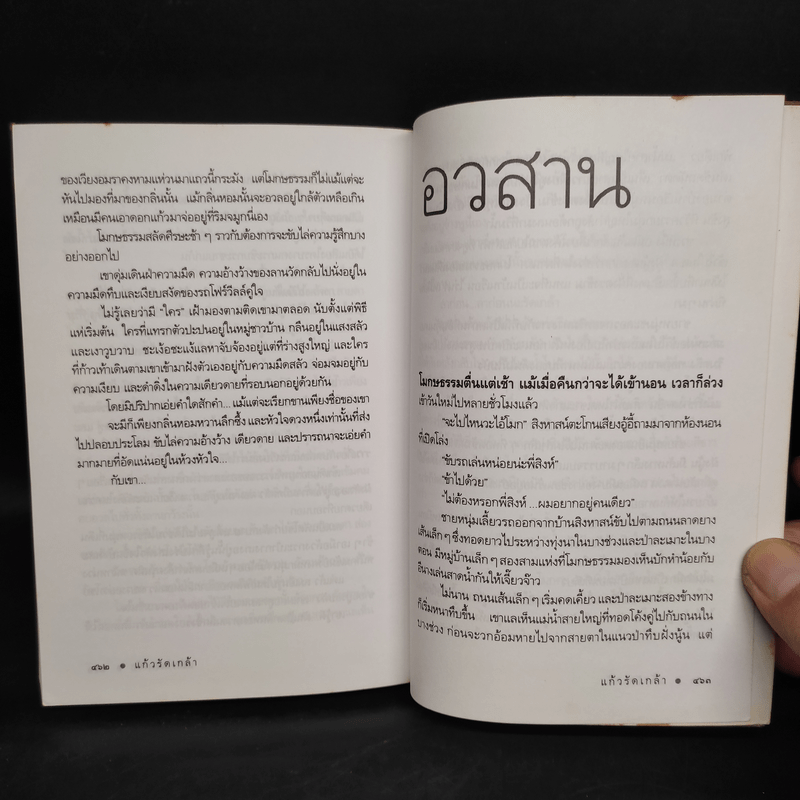 ของเวียงอมราคงหามแห่วนมาแถวนี้กระมัง แต่โมกษธรรมก็ไม่แม้แต่จะ
หันไปมองที่มาของกลิ่นนั้น แม้กลิ่นหอมนั้นจะอวลอยู่ใกล้ตัวเหลือเกิน
เหมือนมีคนเอาดอกแก้วมาจ่ออยู่ที่ริมจมูกนี่เอง
โมกษธรรมสลัดศีรษะช้า ๆ ราวกับต้องการจะขับไล่ความรู้สึกบาง
อย่างออกไป
เขาดุ่มเดินฝ่าความมืด ความอ้างว้างของลานวัดกลับไปนั่งอยู่ใน
ความมืดทึบและเงียบสงัดของรถโฟร์วีลล์คู่ใจ
ไม่รู้เลยว่ามี “ใคร” เฝ้ามองตามติดเขามาตลอด นับตั้งแต่พิธี
แห่เริ่มต้น ใครที่แทรกตัวปะปนอยู่ในหมู่ชาวบ้าน กลืนอยู่ในแสงสลัว
และเงาวูบวาบ ชะเง้อชะแง้แลหาจับจ้องอยู่แต่ที่ร่างสูงใหญ่ และใคร
ที่ก้าวเท้าเดินตามเขาเข้ามาฝังตัวเองอยู่กับความมืดสลัว จ่อมจมอยู่กับ
ความเงียบ และดำดิ่งในความเดียวดายที่รอบนอกอยู่ด้วยกัน
โดยมิปริปากเอ่ยคำใดสักคำ... แม้แต่จะเรียกขานเพียงชื่อของเขา
จะมีก็เพียงกลิ่นหอมหวานลึกซึ้ง และหัวใจดวงหนึ่งเท่านั้นที่ส่ง
ไปปลอบประโลม ขับไล่ความอ้างว้าง เดียวดาย และปรารถนาจะเอ่ยคำ
มากมายที่อัดแน่นอยู่ในห้วงหัวใจ...
กับเขา...
๔๖๒ ๑ แก้วรัดเกล้า
อวสาน
โมกษธรรมตื่นแต่เช้า แม้เมื่อคืนกว่าจะได้เข้านอน เวลาก็ล่วง
เข้าวันใหม่ไปหลายชั่วโมงแล้ว
“จะไปไหนวะไอ้โมก” สิงหาสน์ตะโกนเสียงอู้อี้ถามมาจากห้องนอน
ที่เปิดโล่ง
“ขับรถเล่นหน่อยน่ะพี่สิงห์”
“ข้าไปด้วย”
“ไม่ต้องหรอกพี่สิงห์ ...ผมอยากอยู่คนเดียว”
ชายหนุ่มเลี้ยวรถออกจากบ้านสิงหาสน์ขับไปตามถนนลาดยาง
เส้นเล็ก ๆ ซึ่งทอดยาวไประหว่างทุ่งนาในบางช่วงและป่าละเมาะในบาง
ตอน มีหมู่บ้านเล็ก ๆ สองสามแห่งที่โมกษธรรมมองเห็นบักหำน้อยกับ
อีนางเล่นสาดน้ำกันให้เจี๊ยวจ๊าว
ไม่นาน ถนนเส้นเล็ก ๆ เริ่มคดเคี้ยว และป่าละเมาะสองข้างทาง
ก็เริ่มหนาทึบขึ้น เขาแลเห็นแม่น้ำสายใหญ่ที่ทอดโค้งคู่ไปกับถนนใน
บางช่วง ก่อนจะวกอ้อมหายไปจากสายตาในแนวป่าทึบฝั่งนู้น แต่
แก้วรัดเกล้า ๑ ๔๖๓